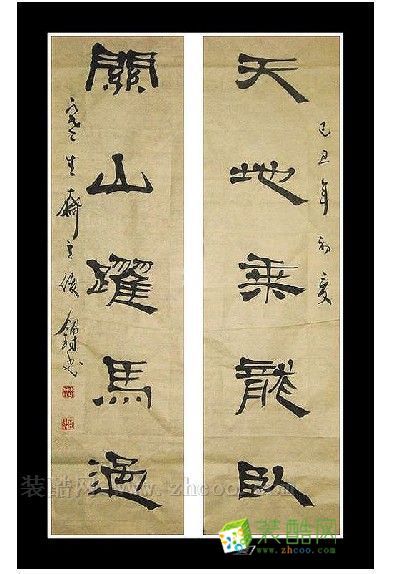 天地乘龍臥
己丑年初夏
關山躍馬過
装酷网 www.zhcoo.com
装酷网
www.zhcoo.com